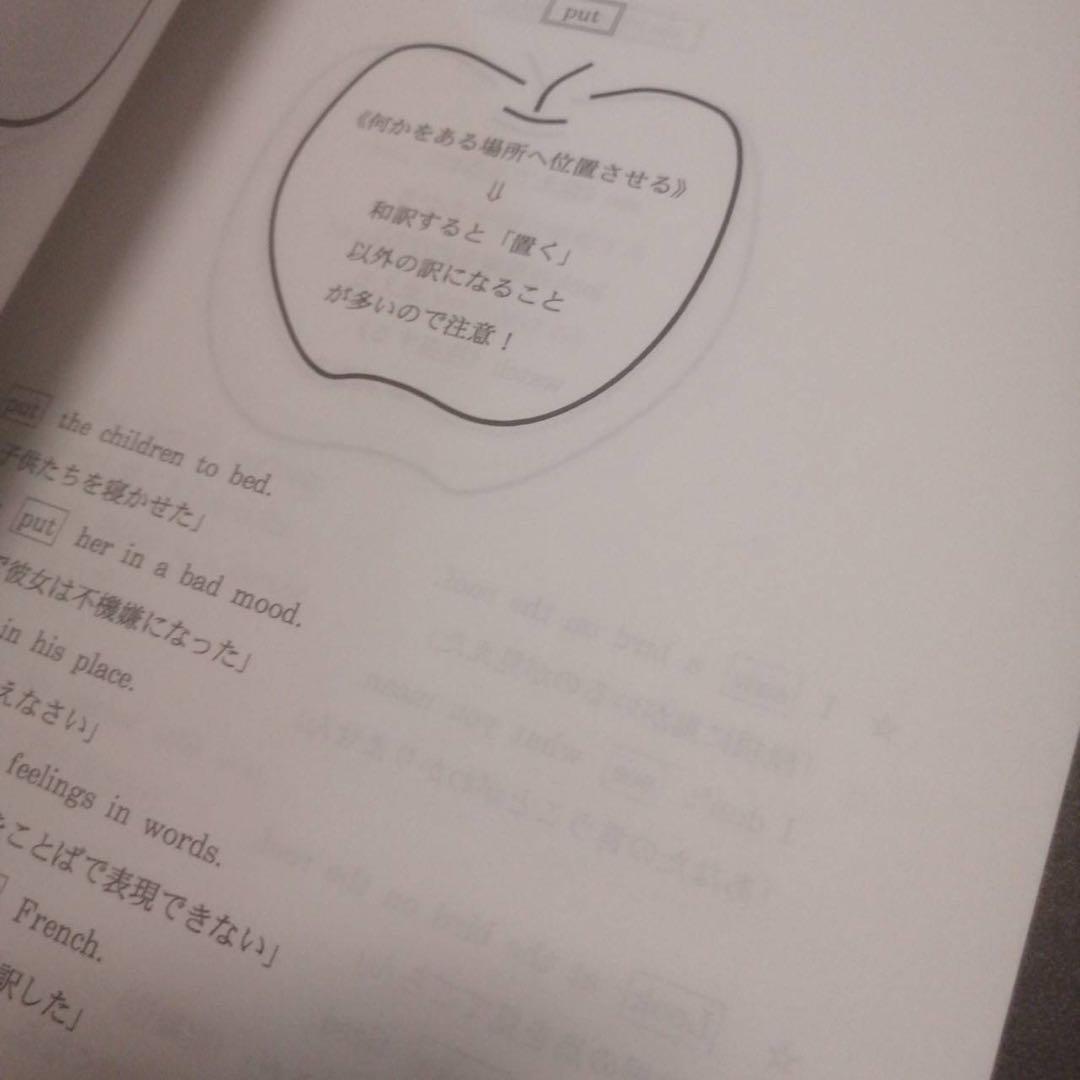 put
《何かをある場所へ位置させる》
⇓
和訳すると「置く」
以外の訳になること
が多いので注意！
put the children to bed.
子供たちを寝かせた」
put her in a bad mood.
彼女は不機嫌になった」
in his place.
えなさい」
feelings in words.
ことばで表現できない」
French.
訳した」